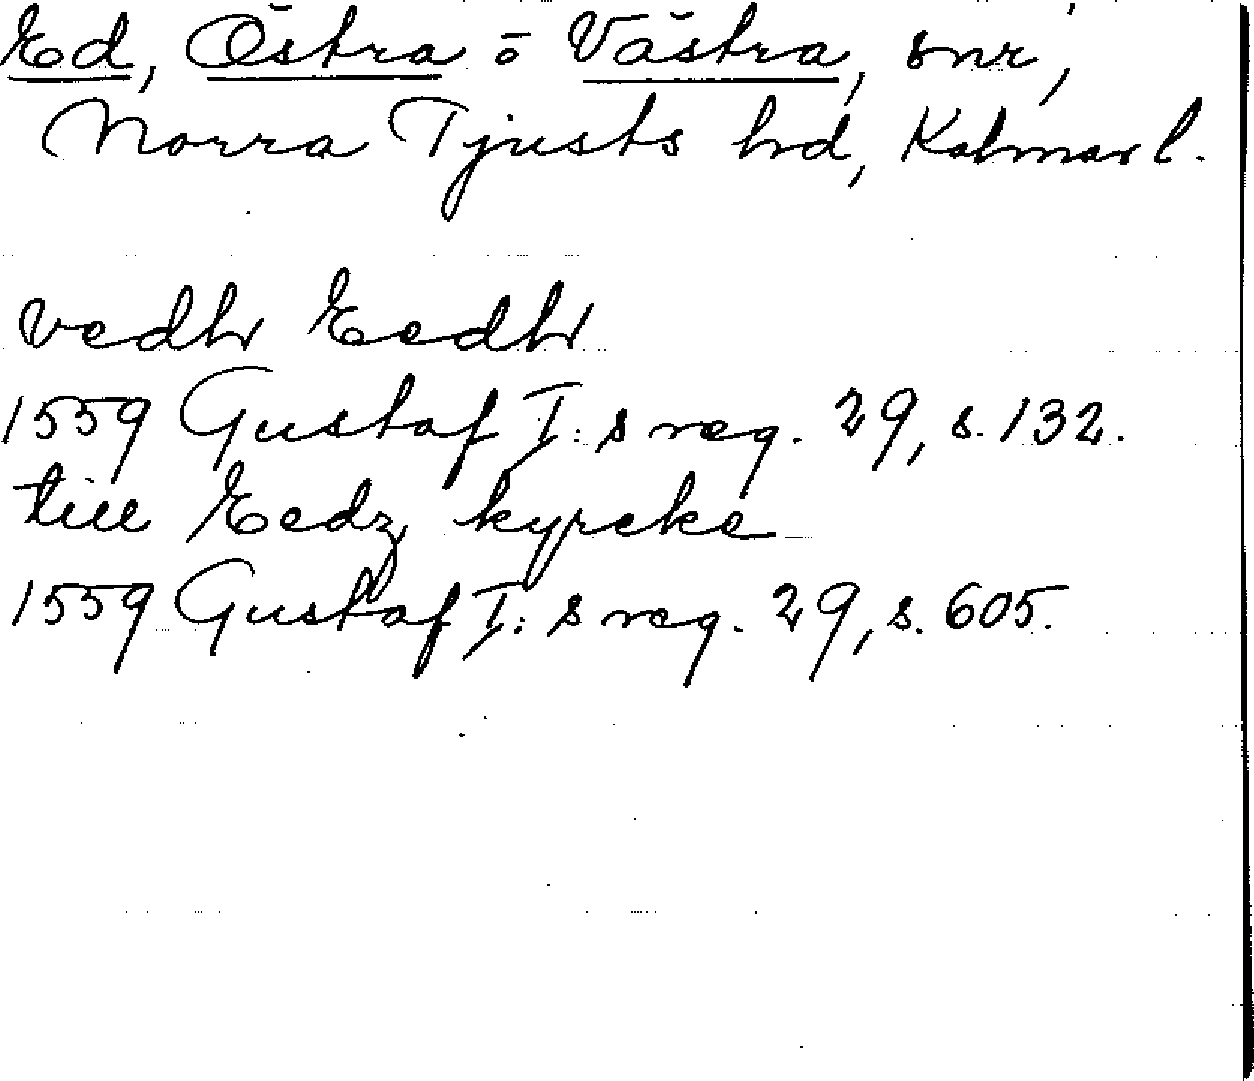 Ed, Östra o Västra, snr,
Norra Tjusts hd, Kalmar l.
vedh Eedh
1559 Gustaf I:s reg. 29, s. 132.
till Eedz kyrcke
1559 Gustaf I:s reg. 29, s. 605.